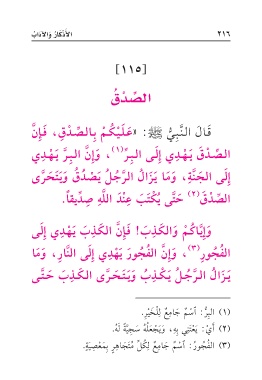 ٢١٦ الأَذْكَارُ وَالآدَابُ
[١١٥]
الصِّدْقُ
قَالَ النَّبِيُّ ﷺ: «عَلَيْكُمْ بِالصِّدْقِ، فَإِنَّ
الصِّدْقَ يَهْدِي إِلَى البِرِّ(١)، وَإِنَّ البِرَّ يَهْدِي
إِلَى الجَنَّةِ، وَمَا يَزَالُ الرَّجُلُ يَصْدُقُ وَيَتَحَرَّى
الصِّدْقَ(٢) حَتَّى يُكْتَبَ عِنْدَ اللَّهِ صِدِّيقاً.
وَإِيَّاكُمْ وَالكَذِبَ! فَإِنَّ الكَذِبَ يَهْدِي إِلَى
الفُجُورِ(٣)، وَإِنَّ الفُجُورَ يَهْدِي إِلَى النَّارِ، وَمَا
يَزَالُ الرَّجُلُ يَكْذِبُ وَيَتَحَرَّى الكَذِبَ حَتَّى
(١) البِرُّ: اَسْمٌ جَامِعٌ لِلْخَيْرِ.
(٢) أَيْ: يَعْتَنِي بِهِ، وَيَجْعَلُهُ سَجِيَّةً لَهُ.
(٣) الفُجُورُ: اَسْمٌ جَامِعٌ لِكُلِّ مُتَجَاهِرٍ بِمَعْصِيَةٍ.